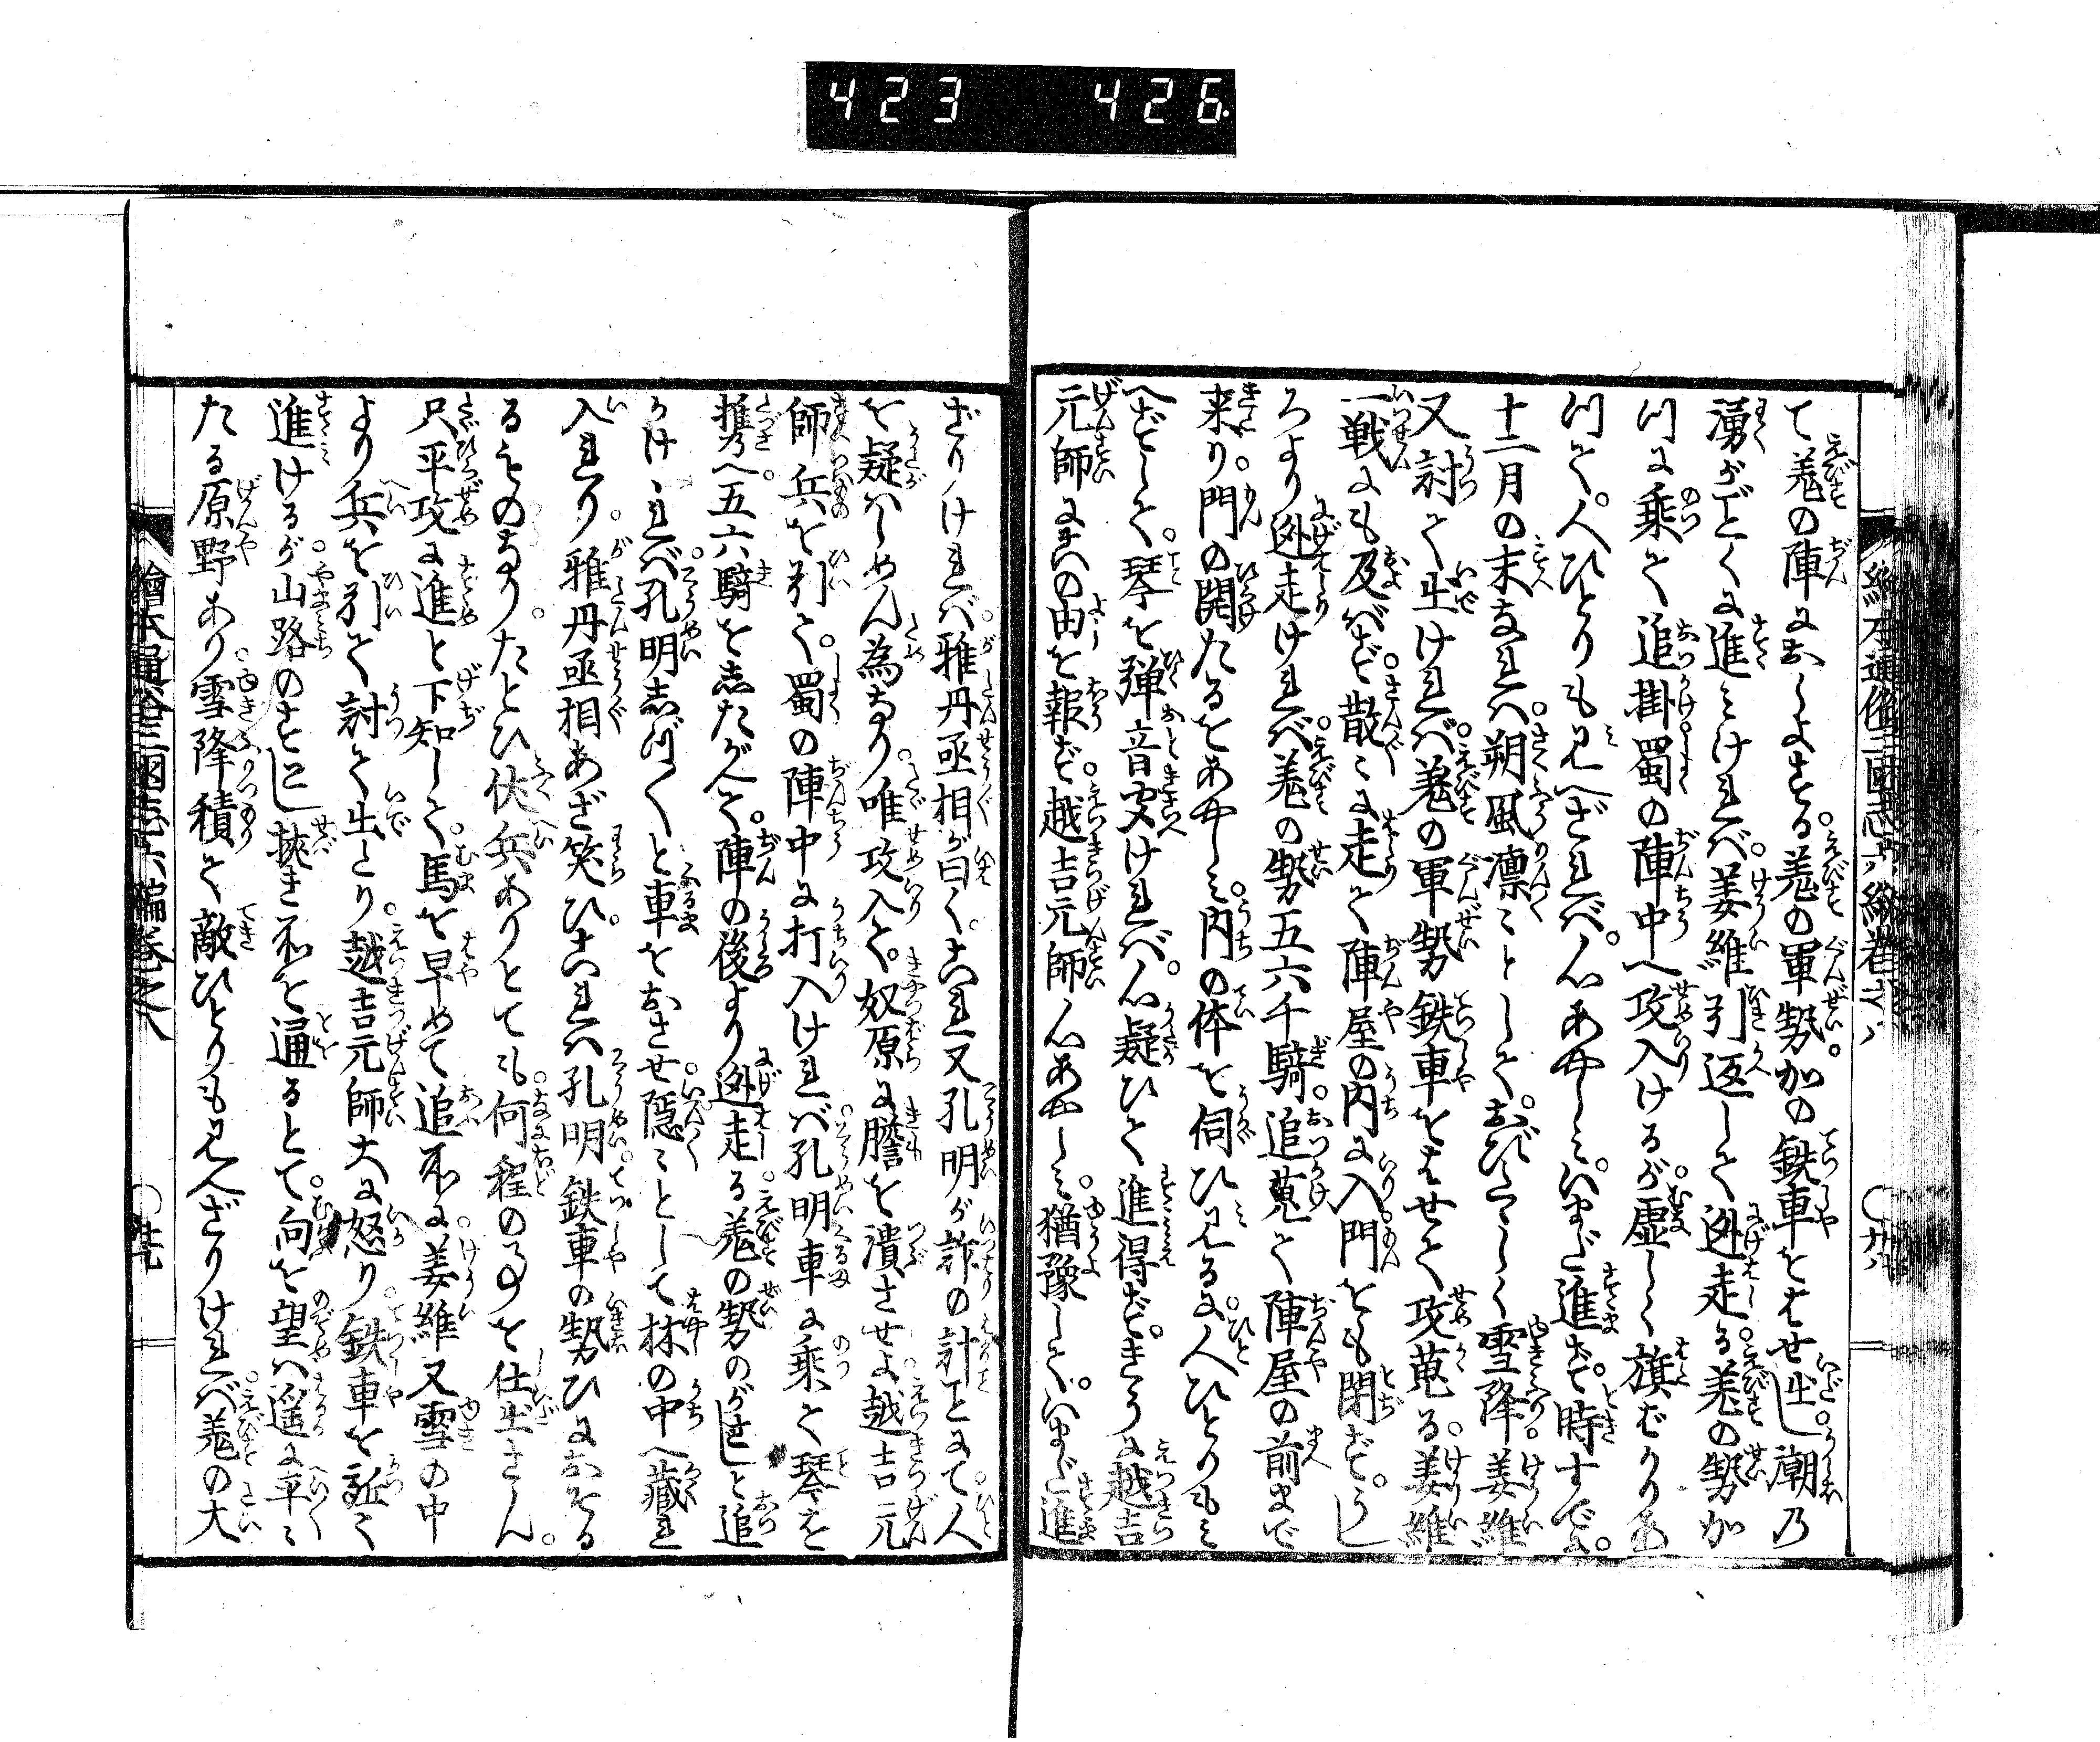 423 426
て羗の陣におしよする。羗の軍勢かの鉄車をはせ出し。潮の
湧がごとくに進みければ。姜維引返して迯走る。羗の勢か
つに乗て追掛。蜀の陣中へ攻入けるが。虚しく旗ばかりあ
つて。人ひとりも見へざれば。心あやしみ。いまだ進まず。時すでに。
十二月の末なれは。朔風凛ことして。おびたゝしく雪降。姜維
又討て出ければ。羗の軍勢鉄車をはせて攻蒐る。姜維
一戦にも及ばず。散ミに走て陣屋の内に入門をも閉ず。うし
ろより迯走ければ。羗の勢五六千騎。追蒐て陣屋の前まで
来り。門の開たるをあやしみ。内の体を伺ひ見るに。人ひとりもみ
へずして。琴を弾音聞へければ。心疑ひて進得ず。きうに越吉
元師にこの由を報ず。越吉元師心あやしみ。猶豫して。いまだ進
ざりければ。雅丹亟相が曰く。これ又孔明が詐の計ことにて。人
を疑はしめん為なり。唯攻入て。奴原に膽を潰させよ。越吉元
師兵を引て。蜀の陣中に打入ければ。孔明車に乗て琴を
携へ。五六騎をしたがへて。陣の後より迯走る。羗の勢のがさじと追
かけゝれば。孔明しづ〱と車をおさせ。隠ミとして林の中へ蔵れ
入れり。雅丹亟相あざ笑ひ。これは孔明鉄車の勢ひにおそる
るものなり。たとひ伏兵ありとても。何程の事を仕出さん。
只平攻に進と下知して。馬を早めて追所に。姜維又雪の中
より兵を引て討て出たり。越吉元師大に怒り。鉄車を近て
進けるが。山路のすこし挟き所を通るとて。向を望は遥に平ミ
たる原野あり。雪降積て敵ひとりも見へざりければ。羗の大
繪本通俗三國志六編巻之八